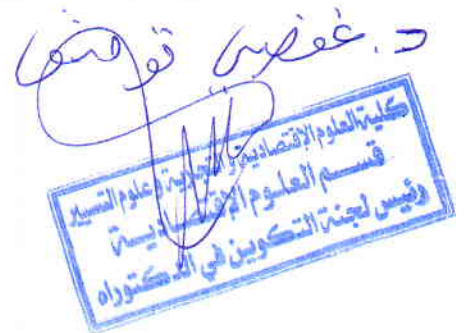 د. غفصي توفيق
كلية العلوم الإقتصادية و التجارية و علوم التسيير
قسم العلوم الإقتصادية
رئيس لجنة التكوين في الدكتوراه